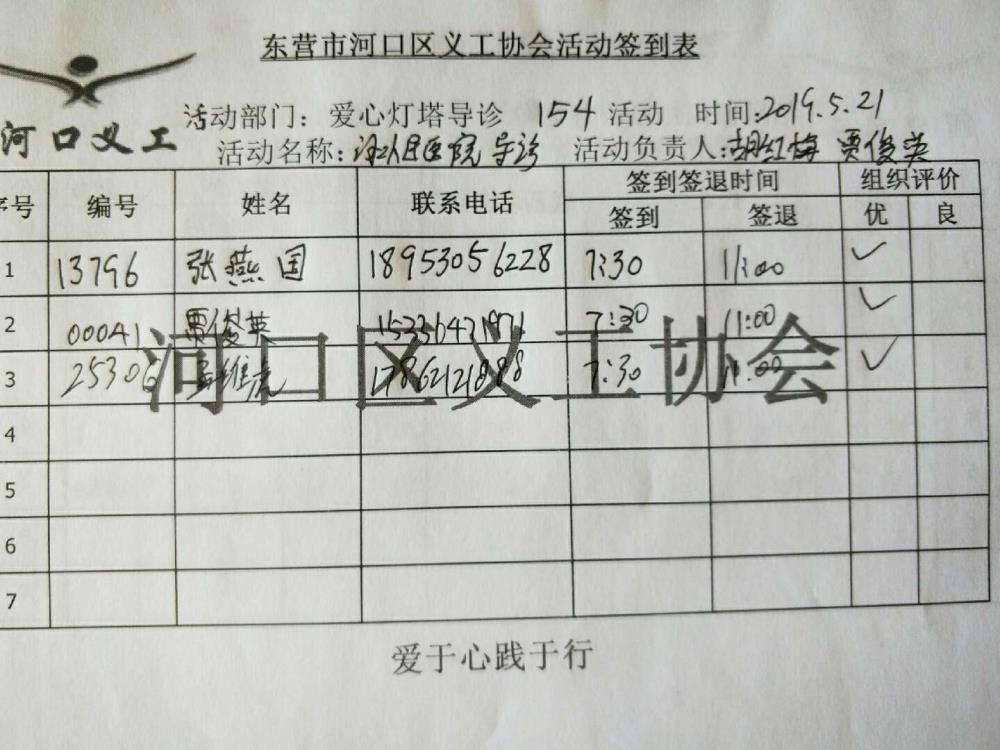 东营市河口区义工协会活动签到表
河口义工
活动部门: 爱心灯塔导诊 154 活动 时间:2019.5.21
活动名称: 人民医院导诊 活动负责人:胡红梅 贾俊英
序号 编号 姓名 联系电话 签到签退时间 组织评价
签到 签退 优 良
1 13796 张燕国 18953056228 7:30 11:00 ✓
2 00041 贾俊英 7:30 11:00 ✓
3 25306 17862121888 7:30 11:00 ✓
4
5
6
7
河口区义工协会
爱于心践于行